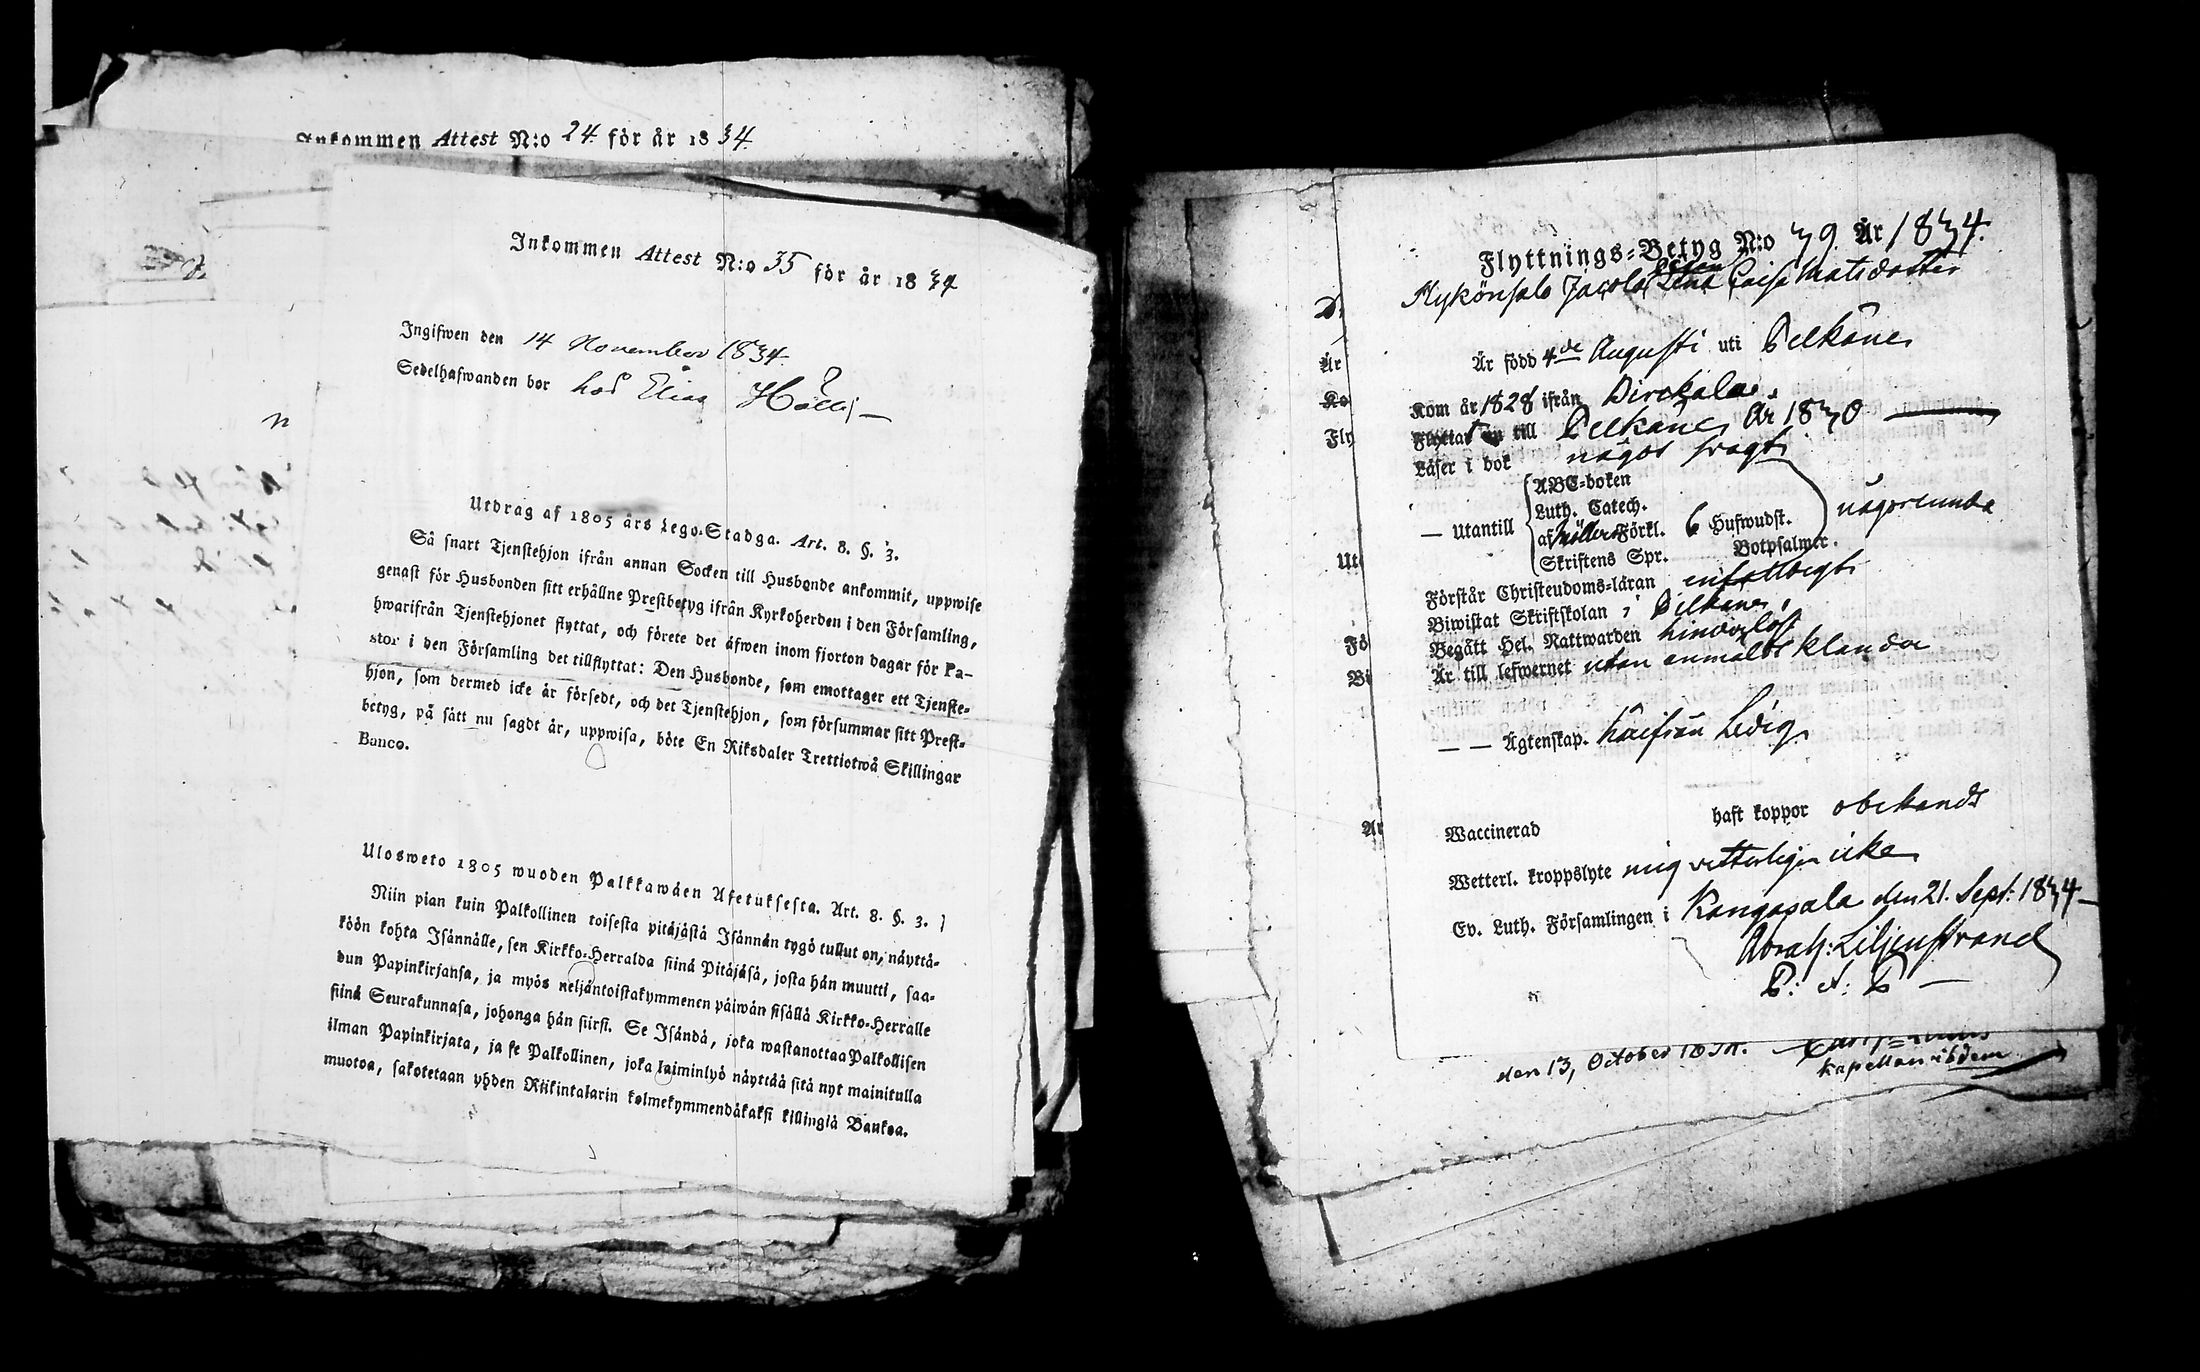 Inkommen Attest N:o 24. för år 1834.
Inkommen Attest N:o 35 för år 1834
Ingifwen den 14 November 1834.
Sedelhafwanden bor hos Elias
Utdrag af 1805 års Lego-Stadga. Art. 8. §. 3.
Så snart Tjenstehjon ifrån annan Socken till Husbonde ankommit, uppwise
genast för Husbonden sitt erhållne Prestbetyg ifrån Kyrkoherden i den Församling,
hwarifrån Tjenstehjonet flyttat, och förete det äfwen inom fjorton dagar för Pa-
stor i den Församling det tillflyttat: Den Husbonde, som emottager ett Tjenste-
hjon, som dermed icke är försedt, och det Tjenstehjon, som försummar sitt Prest-
betyg, på sätt nu sagdt är, uppwisa, böte En Riksdaler Trettiotwå Skillingar
Banco.
Ulosweto 1805 wuoden Palkkawäen Asetuksesta. Art. 8. §. 3.
Niin pian kuin Palkollinen toisesta pitäjästä Isännän tygö tullut on, näyttä-
köön kohta Isännälle, sen Kirkko-Herralda siinä Pitäjäsä, josta hän muutti, saa-
dun Papinkirjansa, ja myös neljäntoistakymmenen päiwän sisällä Kirkko-Herralle
siinä Seurakunnasa, johonga hän siirsi. Se Isändä, joka wastanottaa Palkollisen
ilman Papinkirjata, ja se Palkollinen, joka laiminlyö näyttää sitä nyt mainitulla
muotoa, sakotetaan yhden Riikintalarin kolmekymmendäkaksi killingiä Bankoa.
Flyttnings-Betyg N:o 39. År 1834.
Jacobs Lena Caisa Matsdotter
Är född 4de Augusti uti Pelkäne
Kom år 1828 ifrån Birckala.
Flyttat till Pelkäne År 1830
Läser i bok något swagt
— Utantill ABC-boken
Luth. Catech.
af Möllers Förkl. 6 Hufwudst. någorlunda
Skriftens Spr. Botpsalmer.
Förstår Christendoms-läran enfaldigt
Biwistat Skriftskolan i Pelkäne.
Begått Hel. Nattwarden hinderlöst
Är till lefwernet utan anmäldt klander
— — Ägtenskap. härifrån Ledig
Waccinerad haft koppor obekandt
Wetterl. kroppslyte mig vetterligen icke
Ev. Luth. Församlingen i Kangasala den 21. Sept: 1834
Abrah: Liljenstrand
den 13, October 1834.
Kapellan ibidem
Är
Ko
Fly
Ut
Fö
Bi